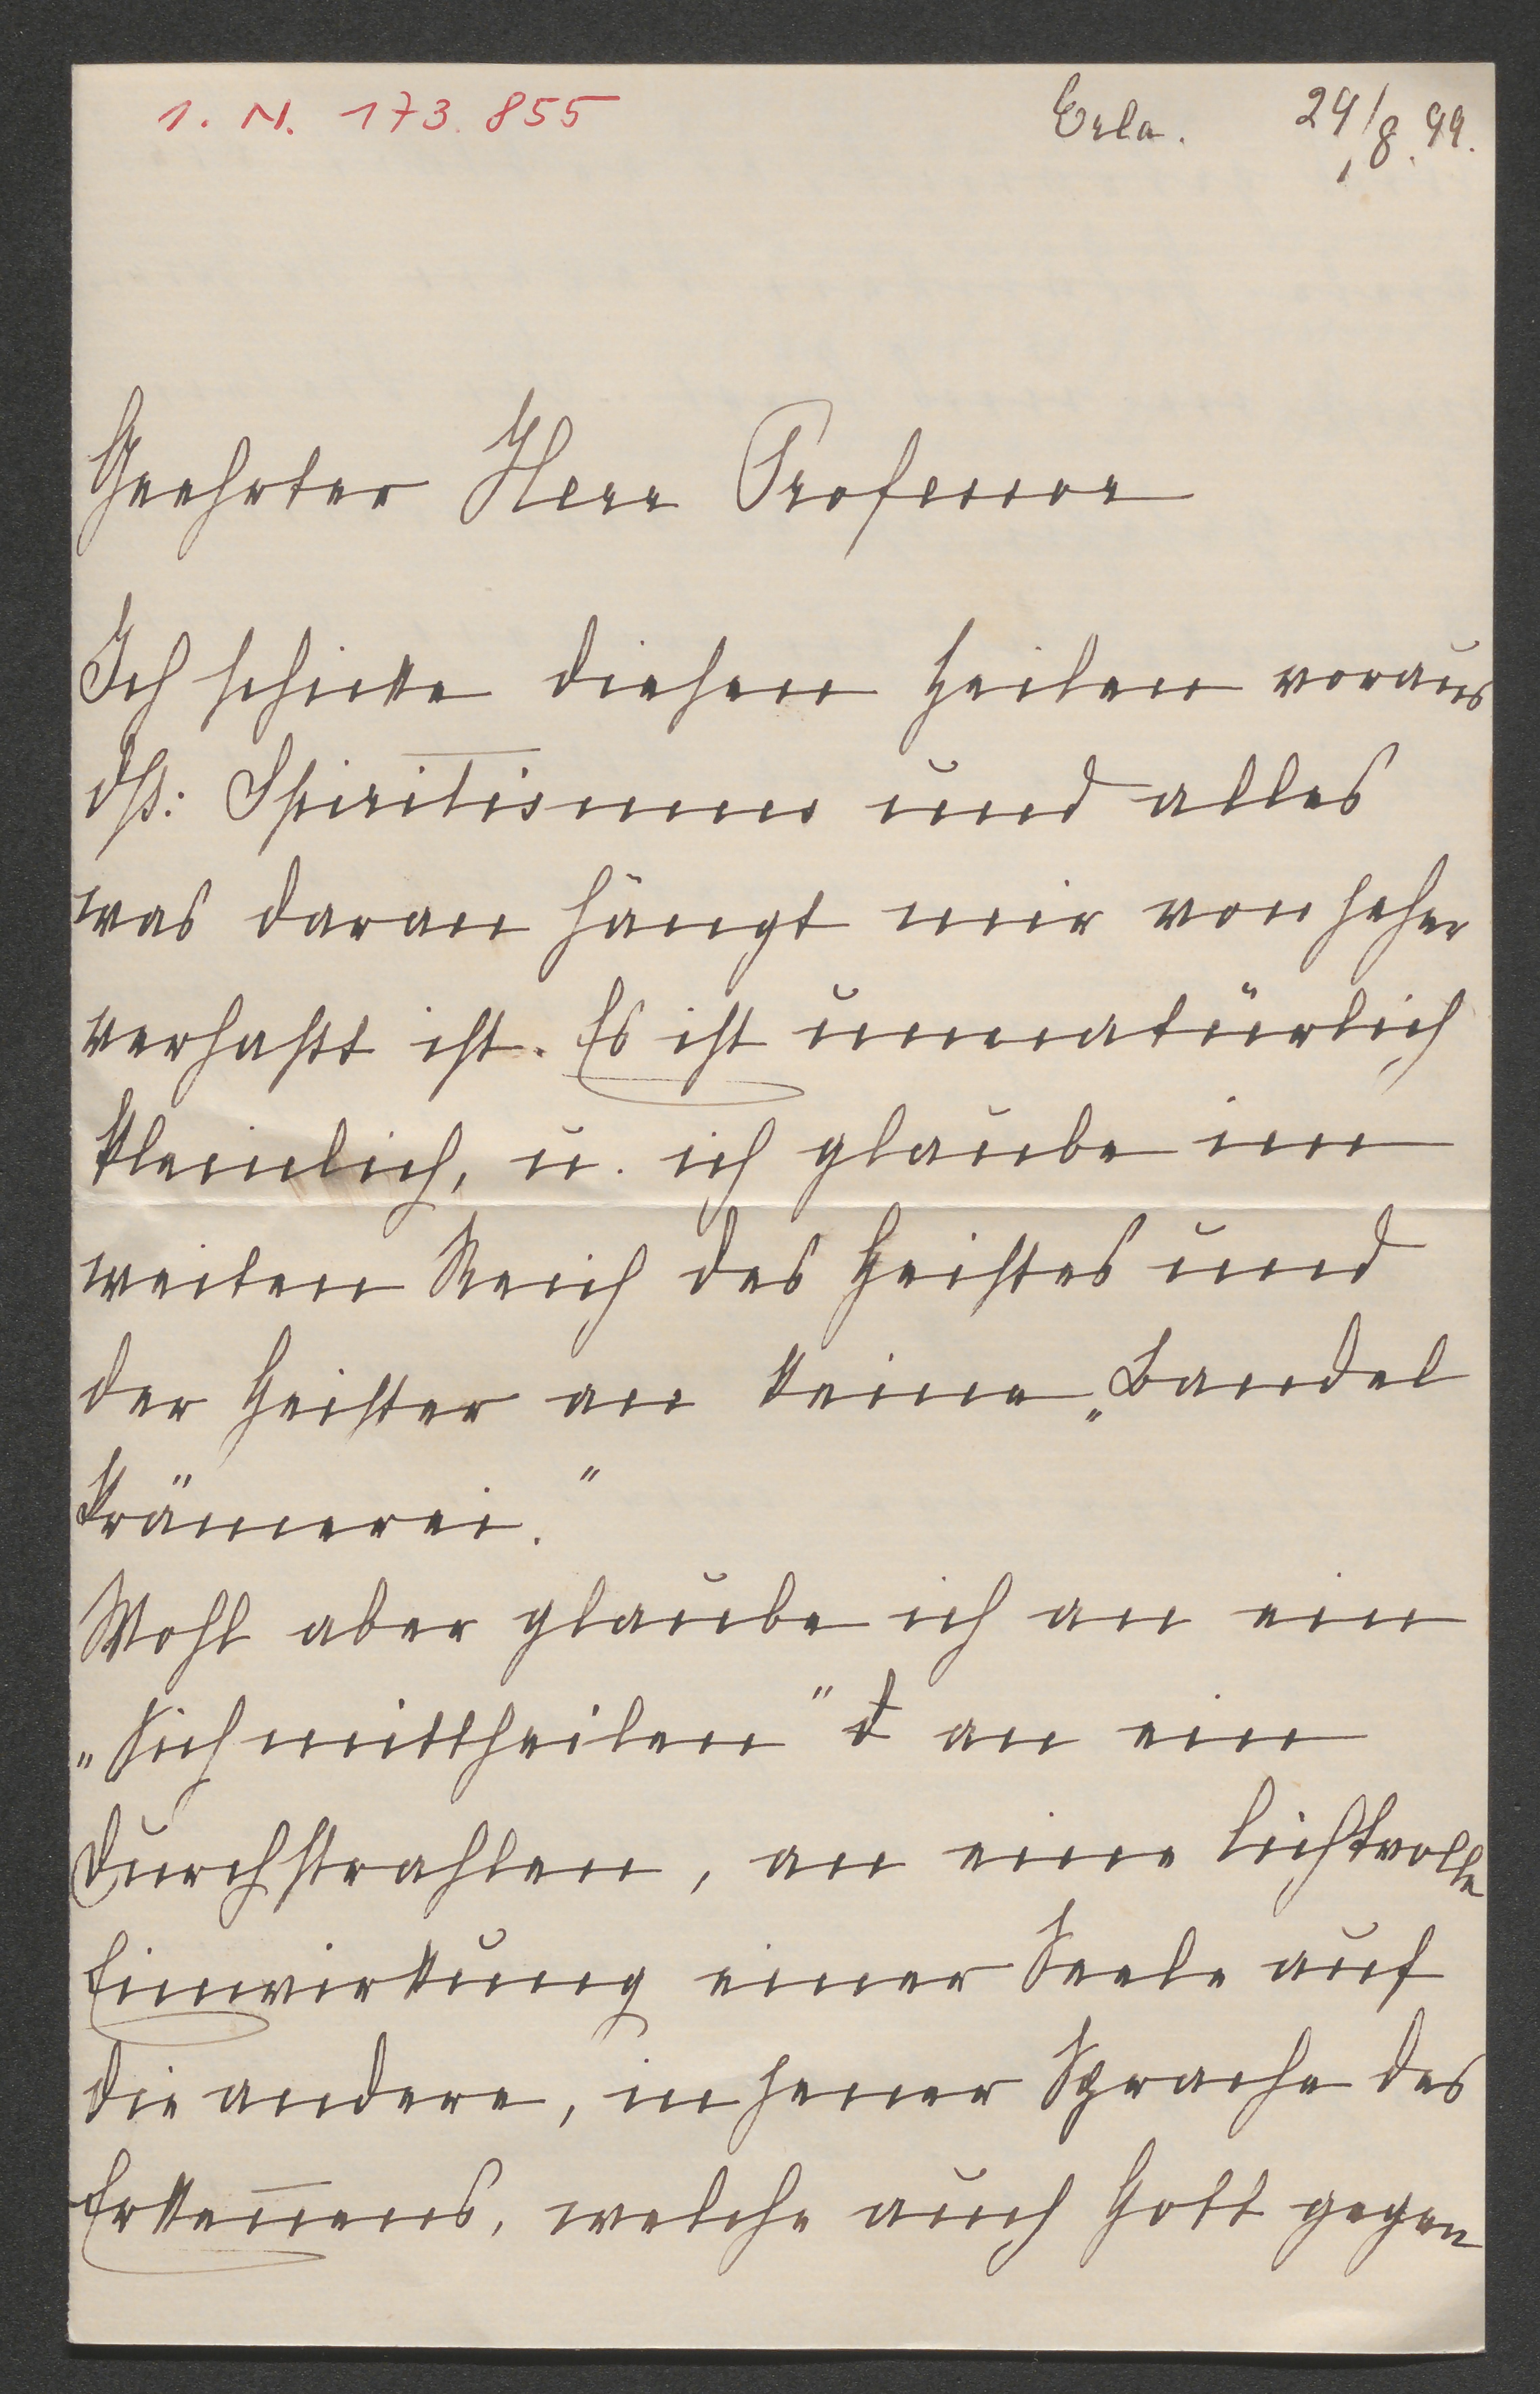 1. N. 173.855
Erla. 24/8.99.
Geehrter Herr Professor
Ich schicke diesen Zeilen voraus
dß: Spiritismus und alles
was daran hängt mir von jeher
verhaßt ist. Es ist unnatürlich
kleinlich, u. ich glaube im
weiten Reich des Geistes und
der Geister an keine „Bandel
krämerei."
Wohl aber glaube ich an ein
„Sich mittheilen" & an ein
Durchstrahlen, an eine lichtvolle
Einwirkung einer Seele auf
die andere, in jener Sprache des
Erkennens, welche auch Gott gegen